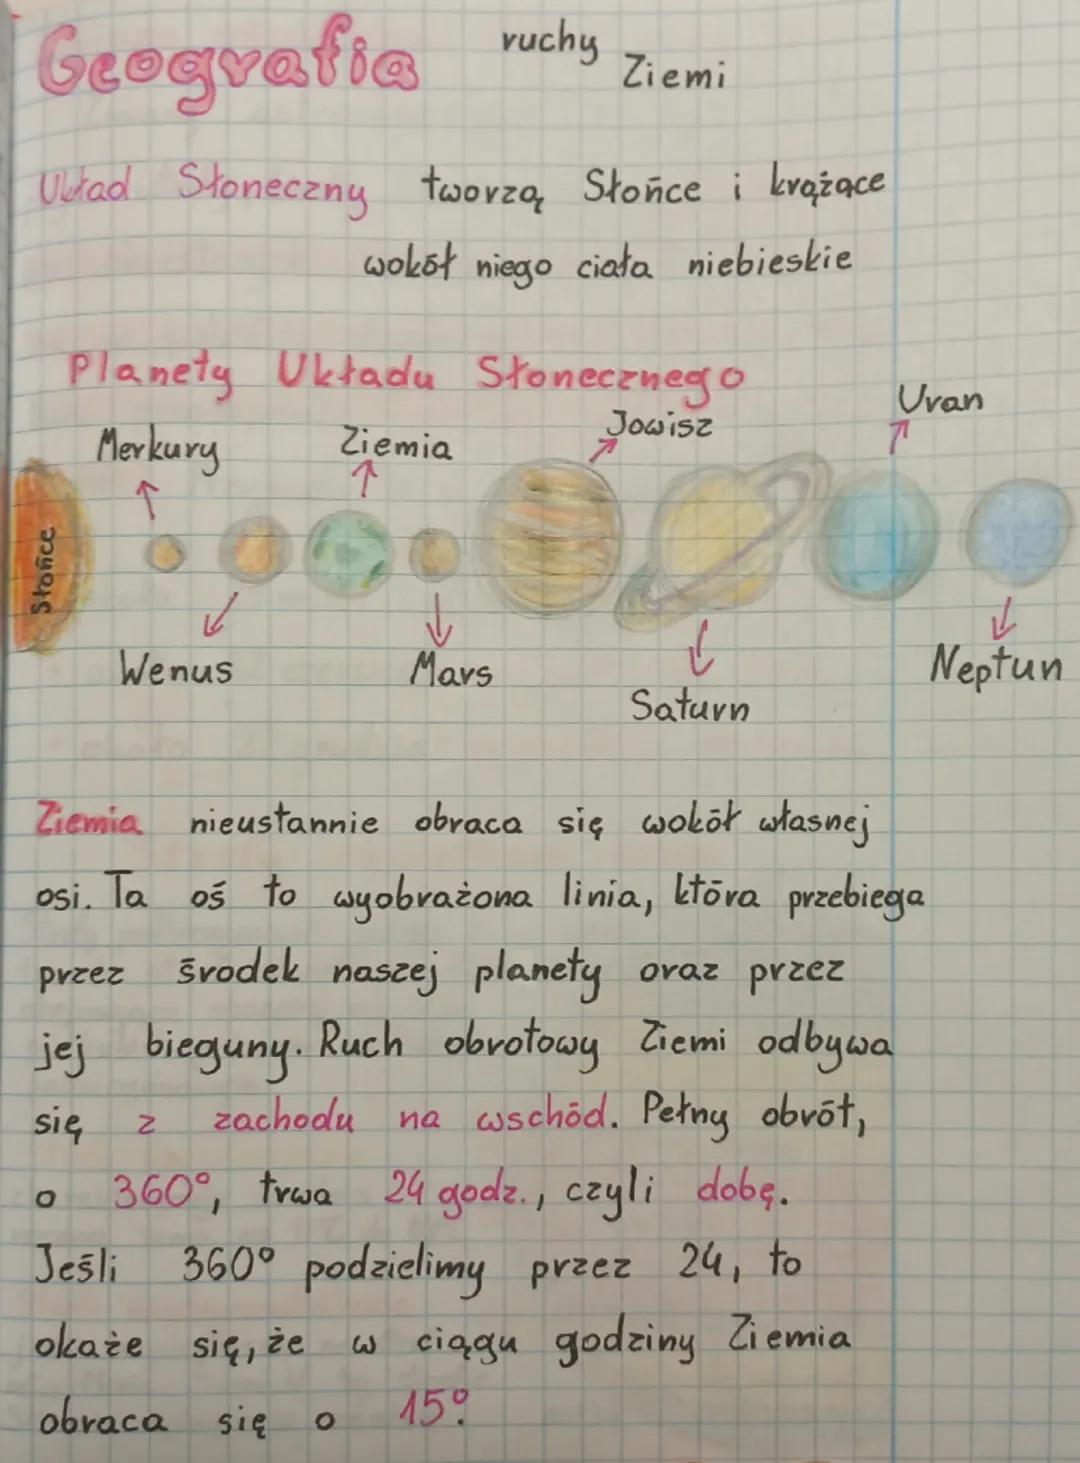 Geografia ruchy Ziemi
Układ Słoneczny tworzą Słońce i krążące
wokół niego ciała niebieskie
Planety Układu Słonecznego
Merkury
Ziemia
Jowisz
Uran
Słońce
Wenus
Mars
Saturn
Neptun
Ziemia nieustannie obraca się wokół własnej
osi. Ta oś to wyobrażona linia, która przebiega
przez środek naszej planety oraz przez
jej bieguny. Ruch obrotowy Ziemi odbywa
się z zachodu na wschód. Pełny obrót,
o 360°, trwa 24 godz., czyli dobę.
Jeśli 360° podzielimy przez 24, to
okaże się, że w ciągu godziny Ziemia
obraca się o 15°.